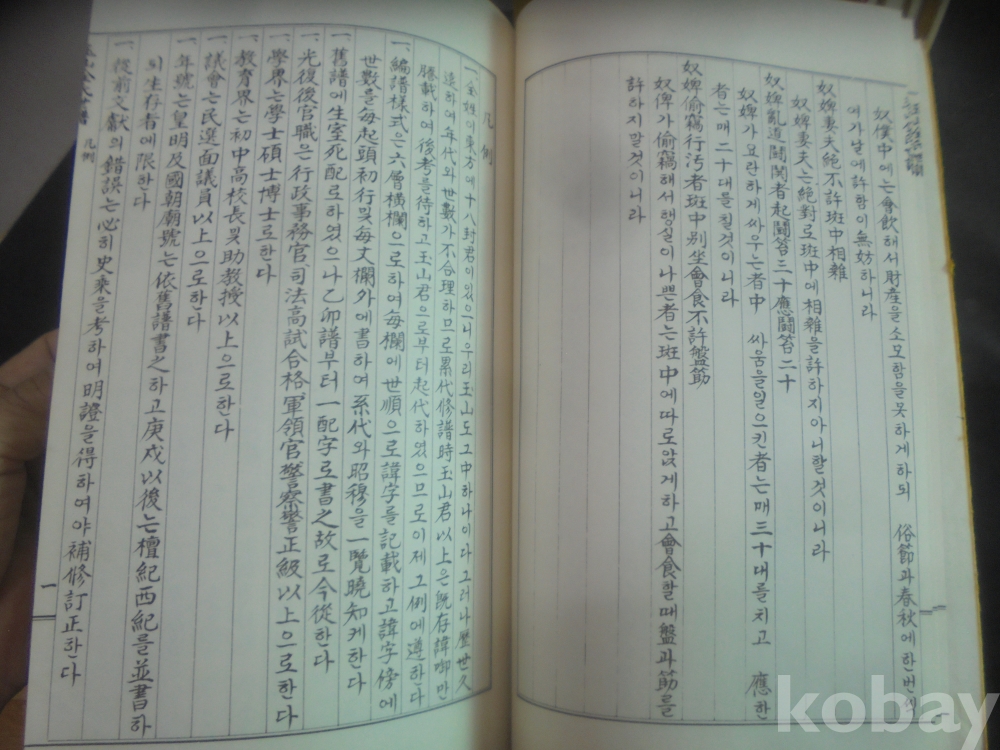 奴僕中에는會飮해서財産을소모함을못하게하되 俗節과春秋에한번식
여가날에許함이無妨하니라
奴婢妻夫絶不許班中相雜
奴婢妻夫는絶對로班中에相雜을許하지아니할것이니라
奴婢亂道鬪鬨者起鬪笞三十應鬪笞二十
奴婢가요란하게싸우는者中 싸움을일으킨者는매三十대를치고 應한
者는매二十대를칠것이니라
奴婢偷竊行汚者班中別坐會食不許盤筯
奴俾가偷竊해서행실이나쁜者는班中에따로앉게하고會食할때盤과筯을
許하지말것이니라
凡例
一、金姓이東方에十八封君이있으니우리玉山도그中하나이다그러나歷世久
遠하여年代와世數가不合理하므로累代修譜時玉山君以上은旣存諱啣만
謄載하여後考를待하고玉山君으로부터起代하였으므로이제그例에遵한다
一、編譜樣式은六層橫欄으로하여每欄에世順으로諱字를記載하고諱字傍에
世數을每起頭初行및每丈欄外에書하여系代와昭穆을一覽曉知케한다
一、舊譜에生室死配로하였으나乙卯譜부터一配字로書之故로今從한다
一、光復後官職은行政事務官司法高試合格軍領官警察警正級以上으로한다
一、學界는學士碩士博士로한다
一、敎育界는初中高校長및助敎授以上으로한다
一、議會는民選面議員以上으로한다
一、年號는皇明及國朝廟號는依舊譜書之하고庚戌以後는檀紀西紀을並書하
되生存者에限한다
一、從前文獻의錯誤는必히史乘을考하여明證을得하여야補修訂正한다
凡例
一
kobay